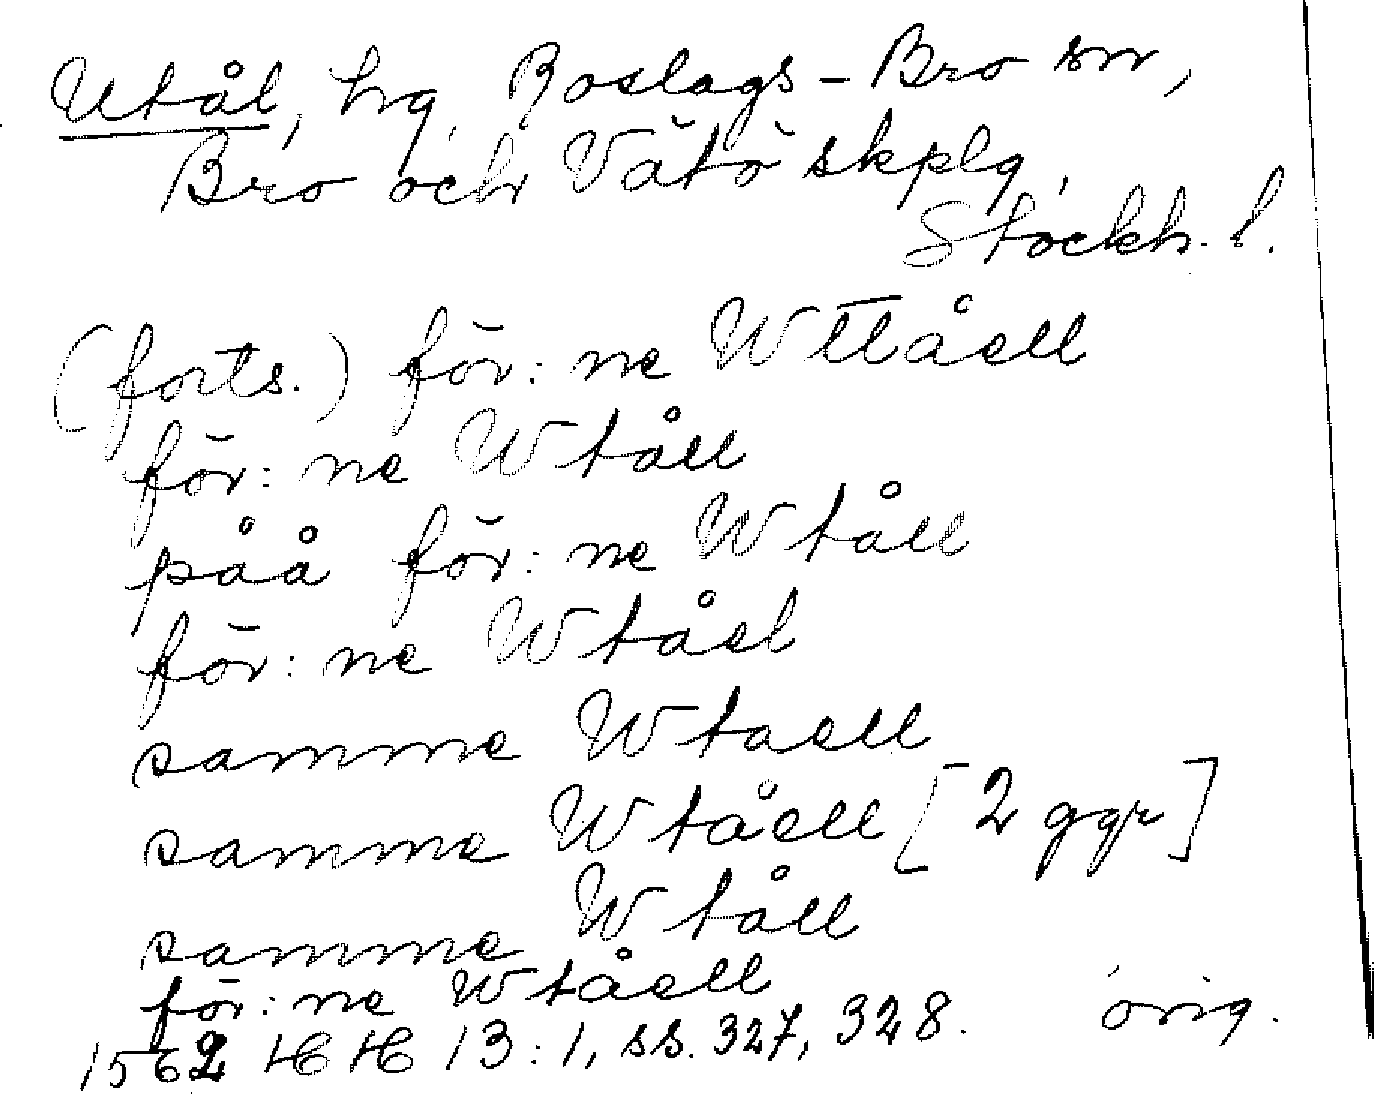 Utål, hg. Roslags-Bro sn,
Bro och Vätö skplg,
Stockh. l.
(forts.) för: ne Wttåell
för: ne Wtåll
påå för: ne Wtåll
för: ne Wtåel
samme Wtaell
samme Wtåell [2 ggr]
samme Wtåll
för: ne Wtåell
1562 HH 13:1, ss. 327, 328. orig.